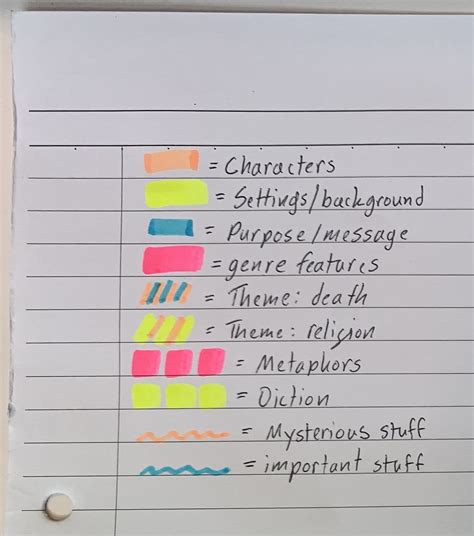 = Characters
= Settings/background
= Purpose/message
= genre features
= Theme: death
= Theme: religion
= Metaphors
= Diction
= Mysterious stuff
= important stuff